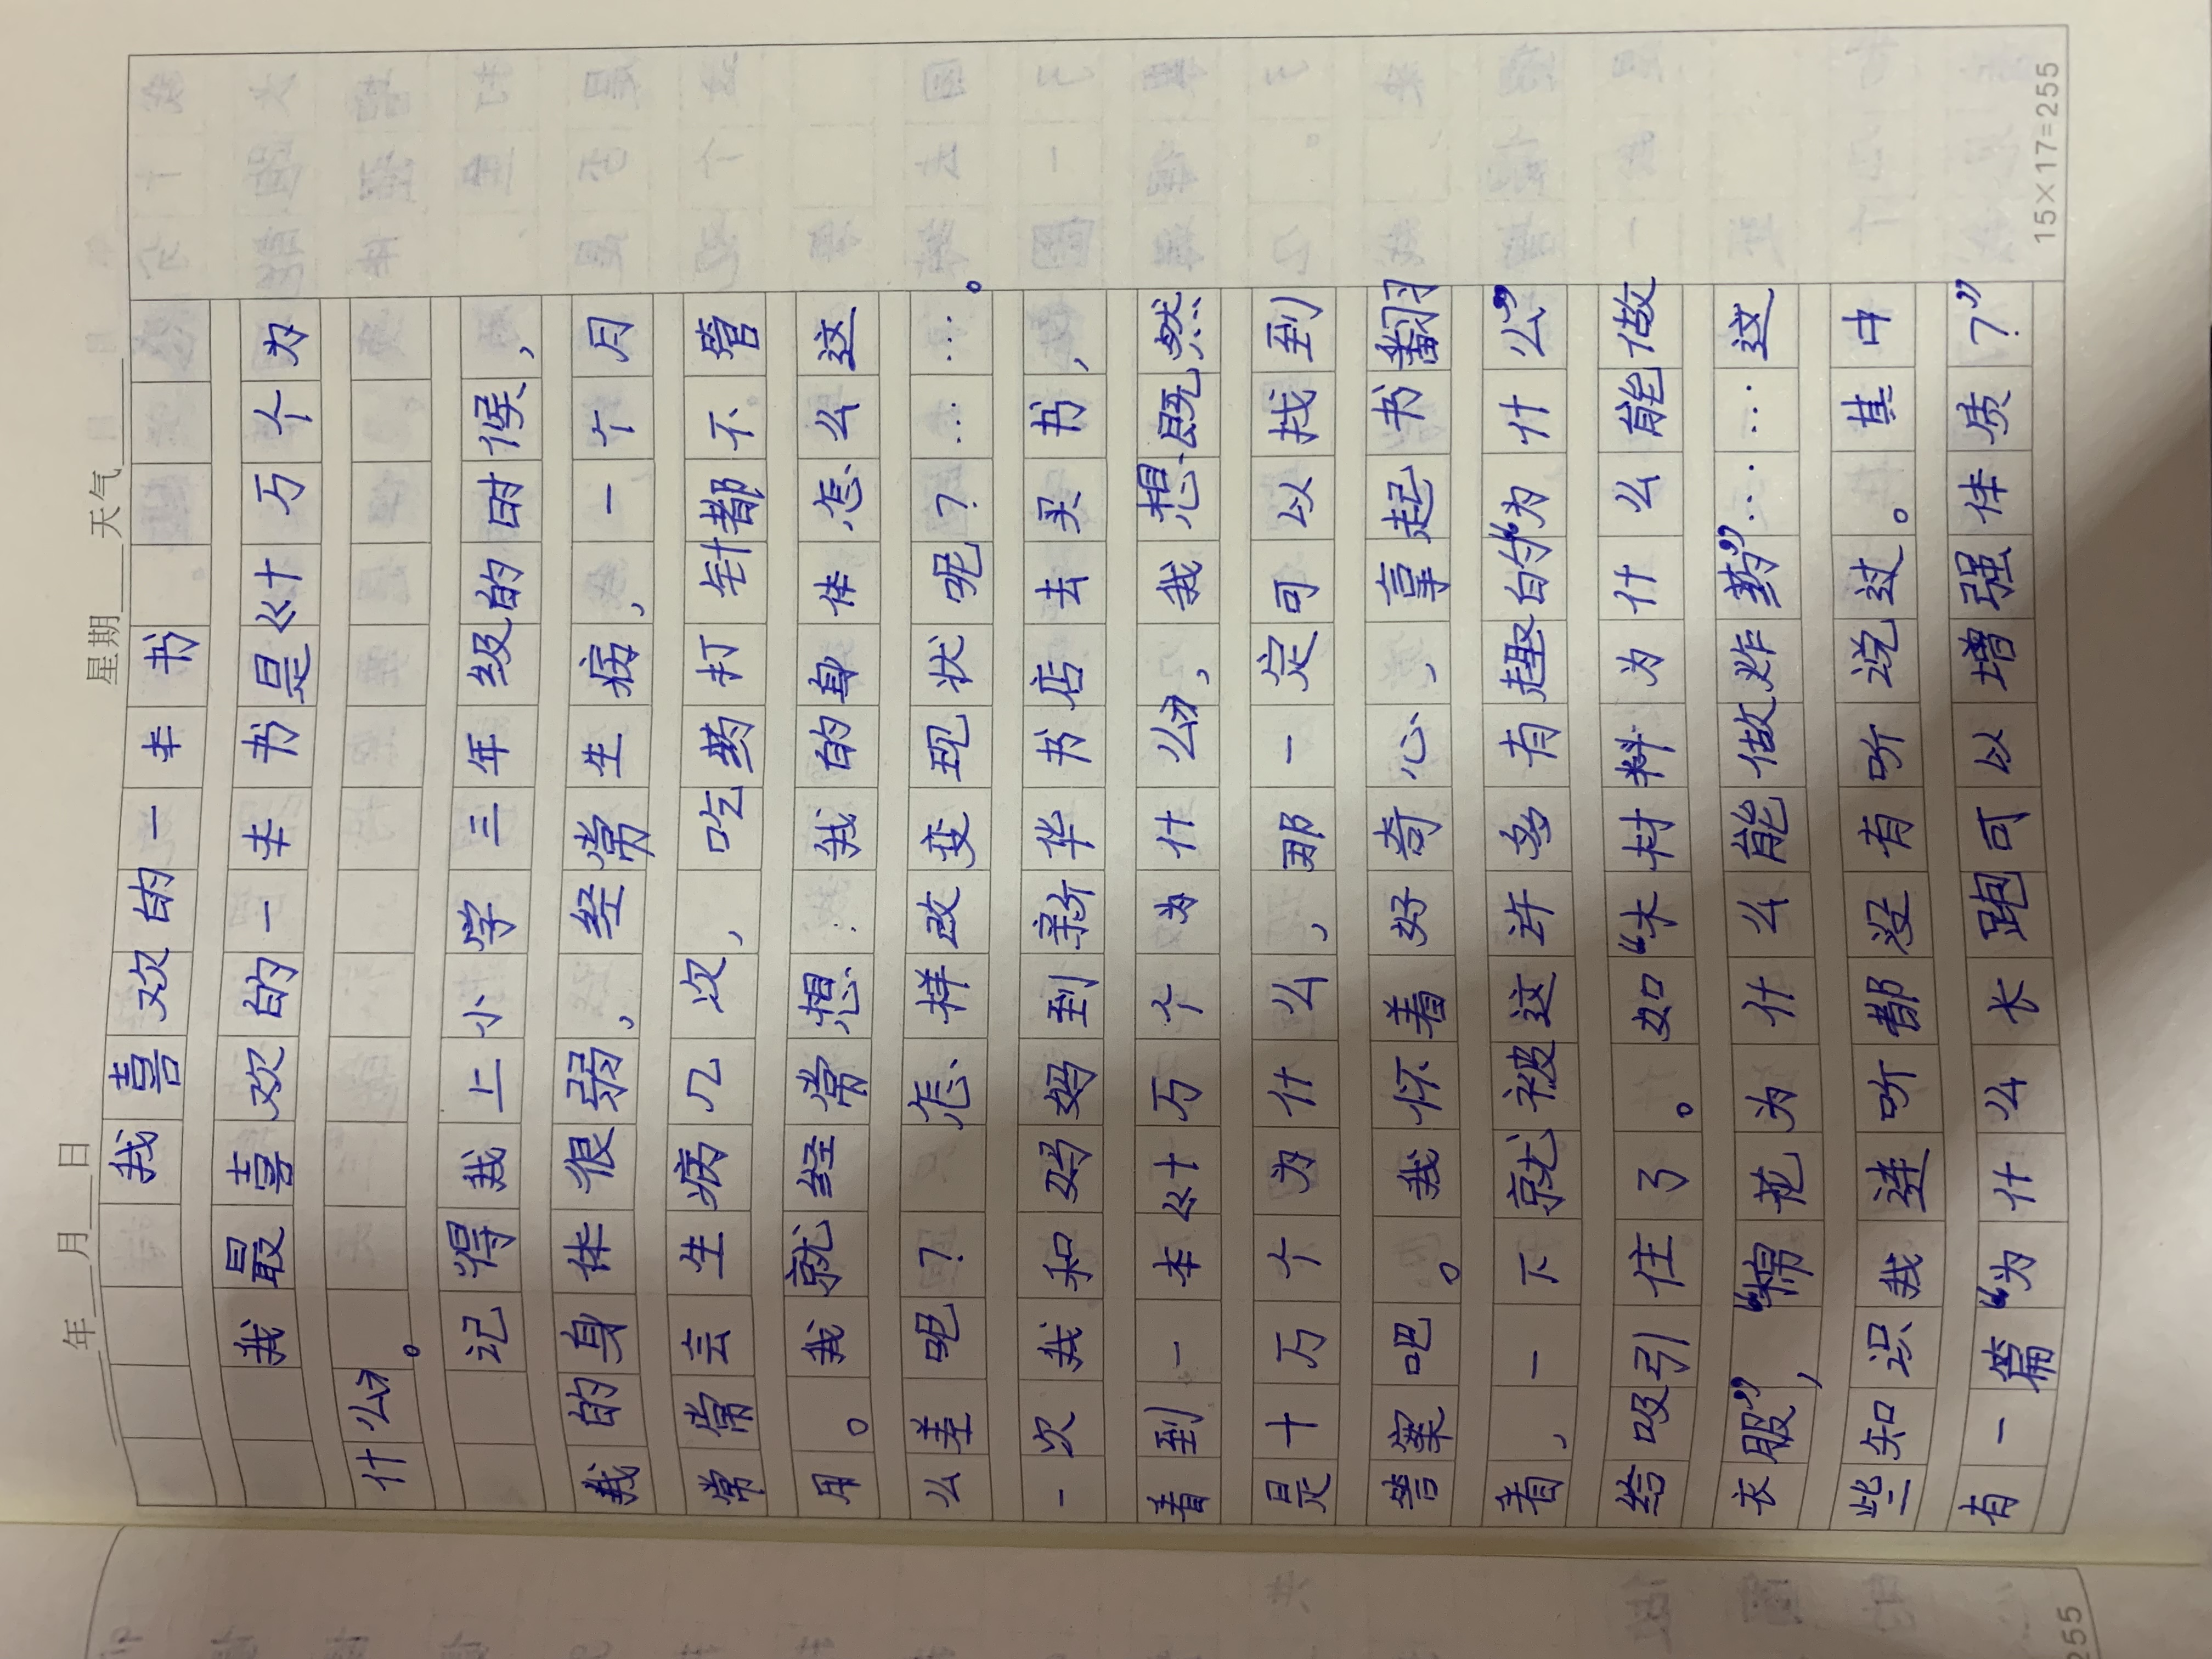 年 月 日 星期 天气
我喜欢的一本书
我最喜欢的一本书是《十万个为
什么》。
记得我上小学三年级的时候,
我的身体很弱,经常生病,一个月
常常会生病几次,吃药打针都不管
用。我就经常想:我的身体怎么这
么差呢?怎样改变现状呢?……。
一次我和妈妈到新华书店买书,
看到一本《十万个为什么》,我想既然
是十万个为什么,那一定可以找到
答案吧。我怀着好奇心,拿起书翻
看,一下就被这许多有趣的“为什么”
给吸引住了。如“木材料为什么能做
衣服”,“棉花为什么能做炸药”……这
些知识我连听都没有听说过。其中
有一篇“为什么长跑可以增强体质?”
15×17=255